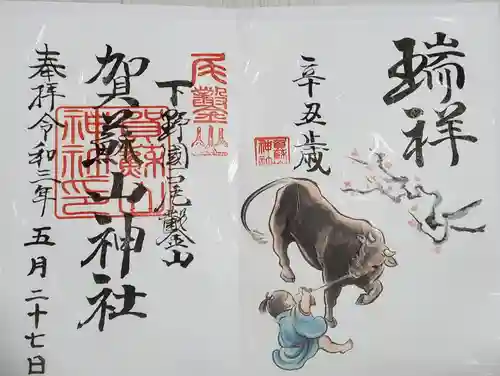 瑞祥
辛丑歳
賀蘇山神社
下野國尾鑿山
賀蘇山神社
奉拝令和三年
五月二十七日